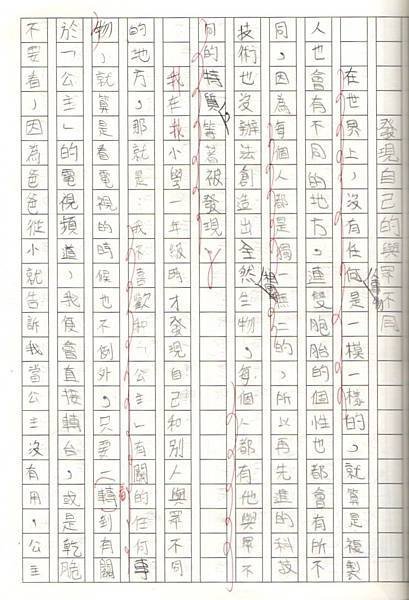 發現自己的與眾不同
在世界上，沒有任何是一模一樣的，就算是複製
人也會有不同的地方，連雙胞胎的個性也都會有所不
同，因為每個人都是獨一無二的，所以再先進的科技
技術也沒辦法創造出全然生物，每個人都有他與眾不
同的特質等著被發現。
我在我小學一年級時才發現自己和別人與眾不同
的地方，那就是：我不喜歡和「公主」有關的任何事
物，就算是看電視的時候也不例外，只要一轉到有關
於「公主」的電視頻道，我便會直接轉台，或是乾脆
不要看，因為爸爸從小就告訴我當公主沒有用，公主